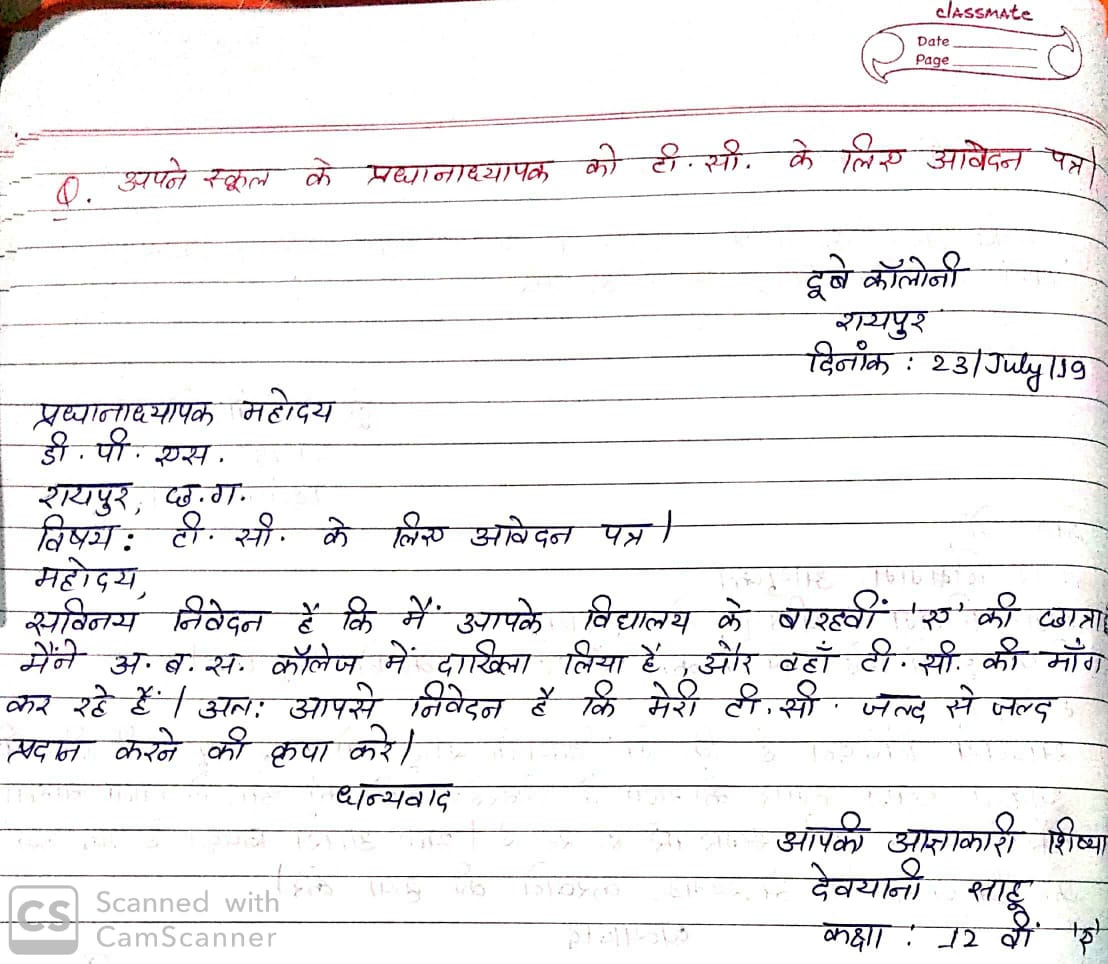 classmate
Date
Page
Q. अपने स्कूल के प्रधानाध्यापक को टी. सी. के लिए आवेदन पत्र।
दूबे कॉलोनी
रायपुर
दिनांक : 23/July/19
प्रधानाध्यापक महोदय
डी. पी. एस.
रायपुर, छ.ग.
विषय : टी. सी. के लिए आवेदन पत्र।
महोदय,
सविनय निवेदन है कि मैं आपके विद्यालय के बारहवीं 'ए' की छात्रा
मैंने अ. ब. स. कॉलेज में दाखिला लिया है, और वहाँ टी. सी. की माँग
कर रहे हैं। अतः आपसे निवेदन है कि मेरी टी. सी. जल्द से जल्द
प्रदान करने की कृपा करे।
धन्यवाद
आपकी आज्ञाकारी शिष्या
देवयानी साहू
कक्षा : 12 वीं 'ए'
CS Scanned with
CamScanner